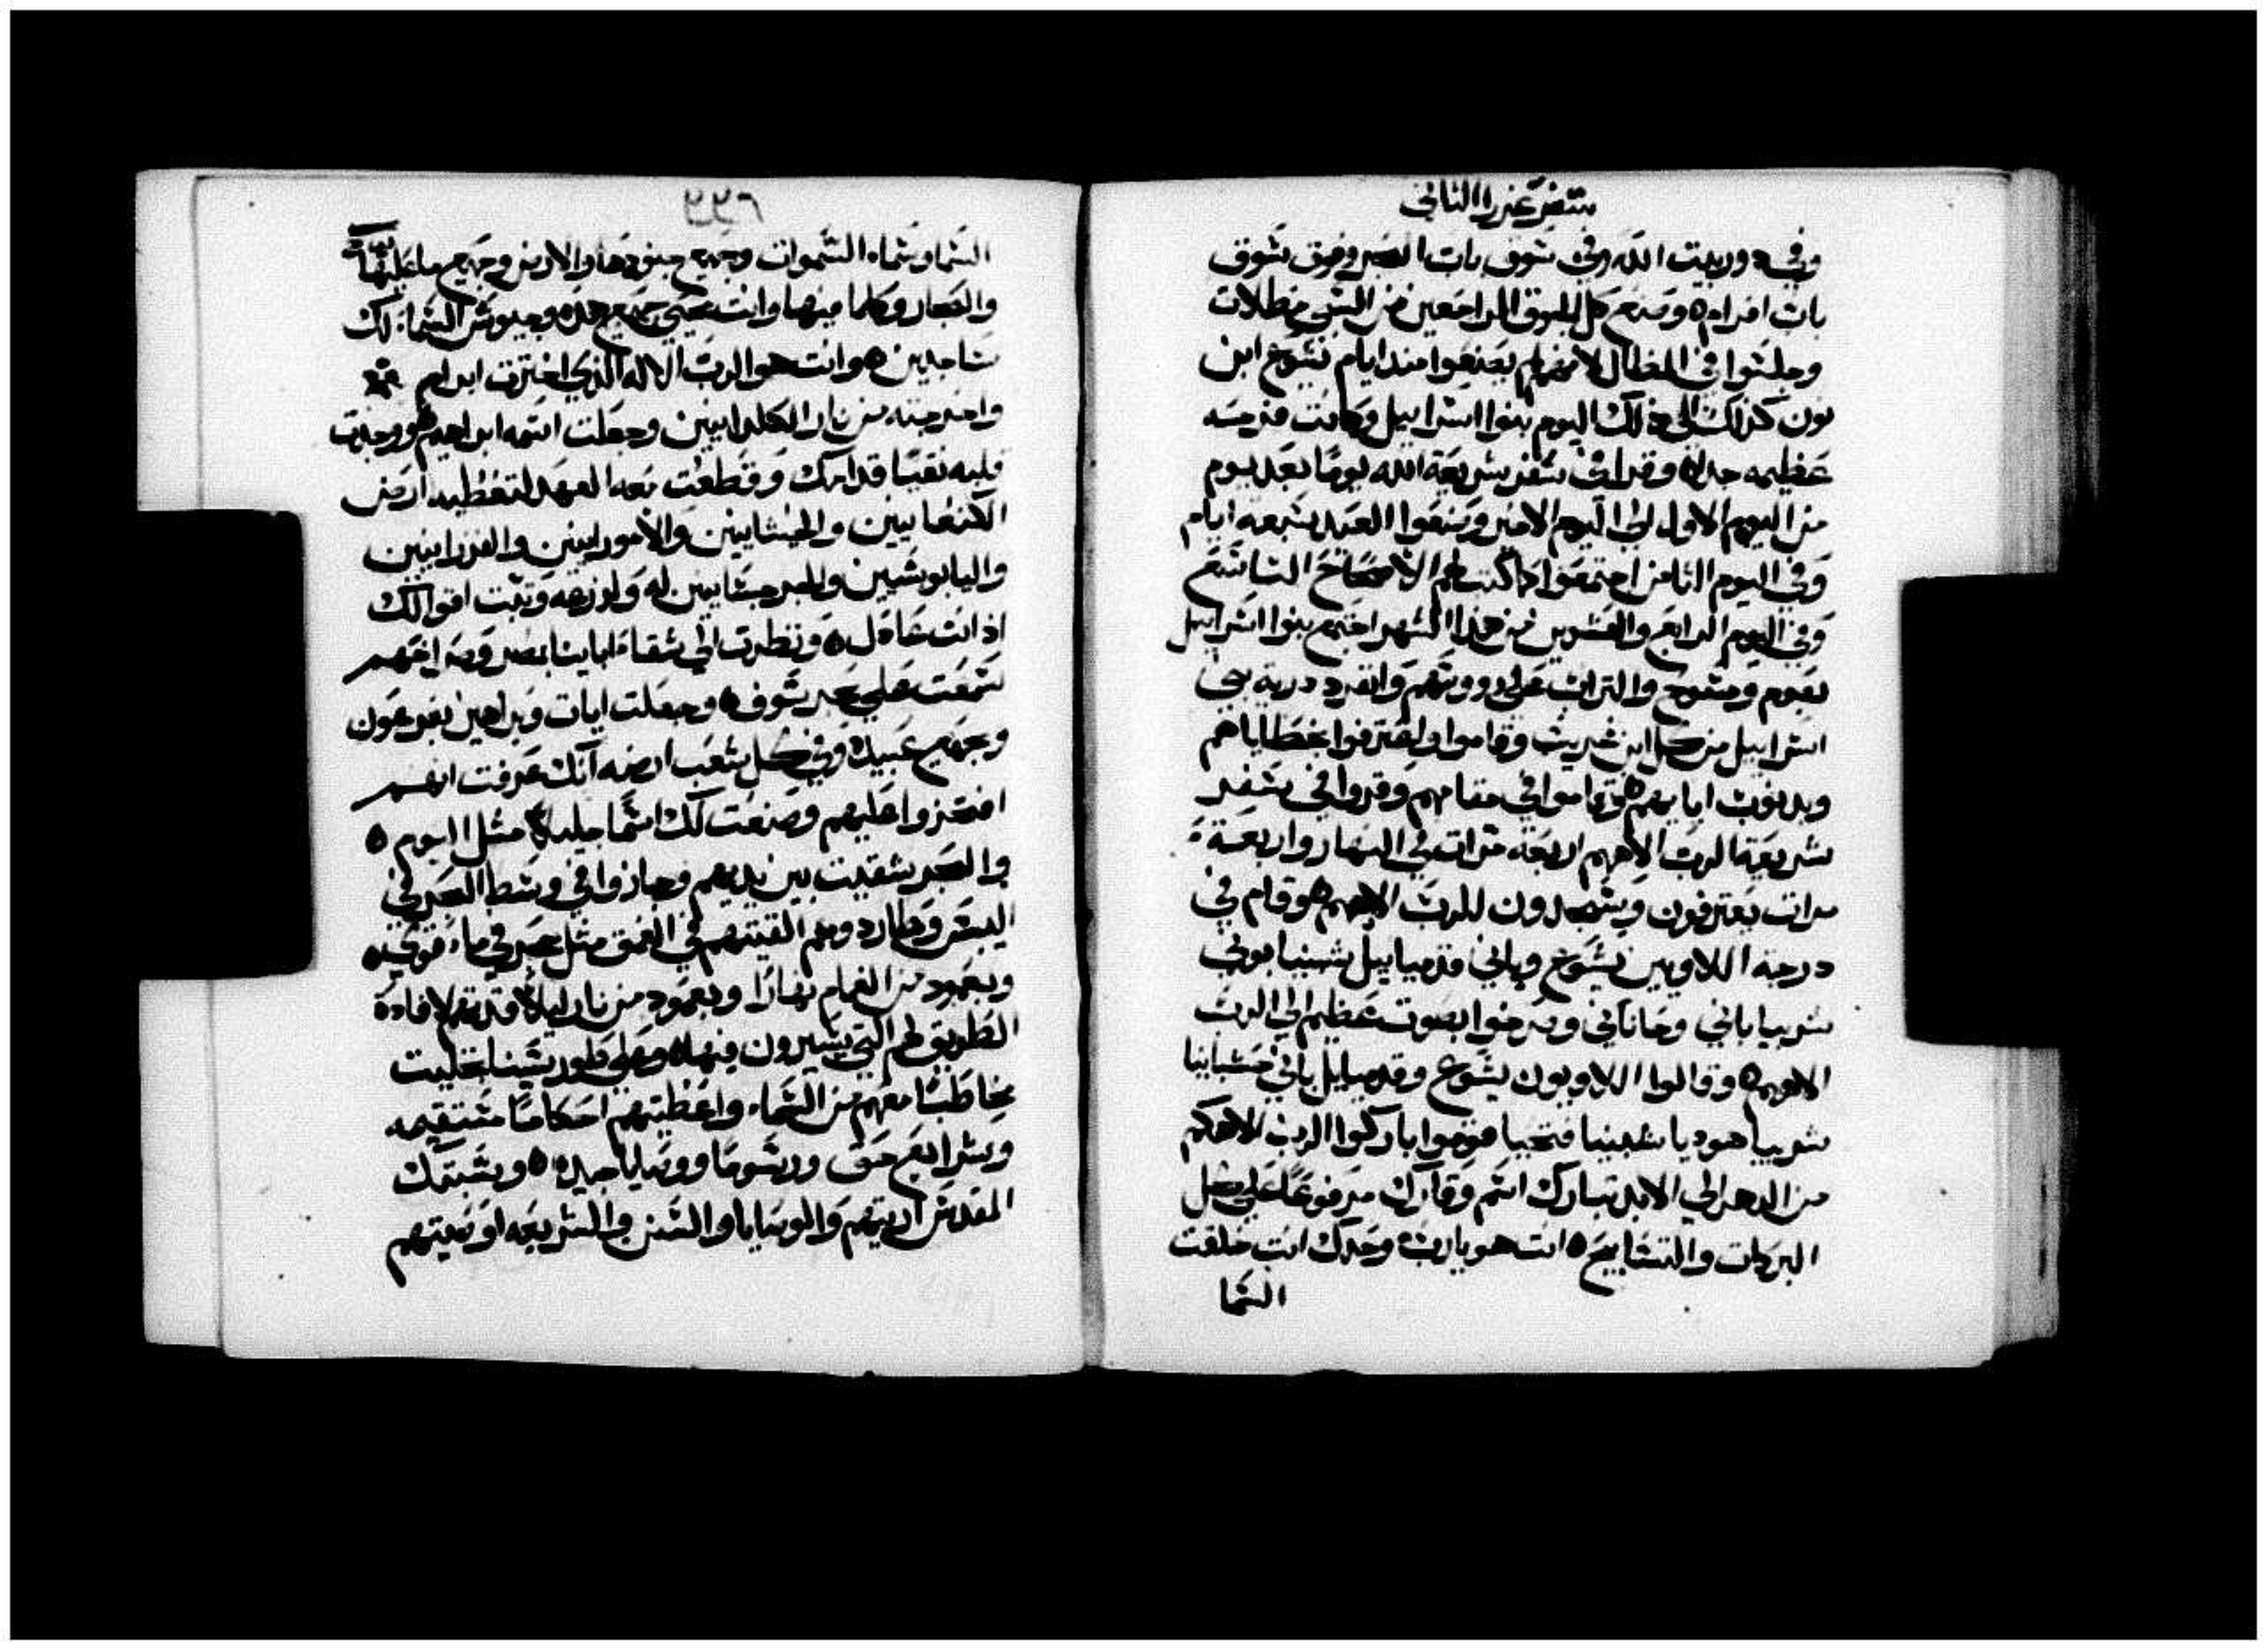 سفر عزرا الثاني
وفي دور بيت الله وفي سوق باب الصبر وفوق سوق
باب افرام ٥ وصنع كل الجوق الراجعين من السبي مظلات
وجلسوا في المظال لانهم لم يصنعوا منذ ايام يشوع ابن
نون كذلك الى ذلك اليوم بنوا اسراييل وكانت فرحه
عظيمه جدا ٥ وقرا في سفر شريعة الله يومًا بعد يوم
من اليوم الاول الى اليوم الاخير وصنعوا العيد سبعه ايام
وفي اليوم الثامن اجتمعوا كما كتب لهم الاصحاح التاسع
وفي اليوم الرابع والعشرين من هذا الشهر اجتمع بنوا اسراييل
بصوم ومسوح والتراب على رووسهم وانفرد درية بني
اسراييل من كل ابن غريب وقاموا واعترفوا بخطاياهم
وبدنوب ابايهم ٥ وقاموا في مقامهم وقروا في سفر
شريعة الرب الاههم اربعة مرات في النهار واربعة
مرات يعترفون ويسجدون للرب الاههم ٥ وقام في
درجة اللاويين يشوع وباني قدمياييل شبنيا بوني
سربيا باني وحاناني وصرخوا بصوت عظيم الى الرب
الاههم ٥ وقالوا اللاويون يشوع وقدمياييل باني حسبانيا
سربيا هوديا شبنيا فتحيا قوموا باركوا الرب الاهكم
من الدهر الى الابد تبارك اسم وقارك مرفوعًا على كل
البركات والتسابيح ٥ انت هو يارب وحدك انت خلقت
السما
٢٩٩
السما وسماء السموات وجميع جنودها والارض وجميع ما عليها
والبحار وكلما فيها وانت تحيي جميع هذه وجيوش السما لك
ساجدين ٥ وانت هو الرب الاله الذي اخترت ابرام
واخرجته من نار الكلدانيين وجعلت اسمه ابراهيم ٥ ووجدت
قلبه نقيًا قدامك وقطعت معه العهد لتعطيه ارض
الكنعانيين والحيثانيين والاموراينين والفرزاينين
واليابوسيين والجرجسانيين له ولزرعه وثبت اقوالك
اذ انت عادل ٥ ونظرت الي شقاء ابايينا بمصر وصراخهم
سمعت علي بحر سوف ٥ وجعلت ايات وبراهين بفرعون
وبجميع عبيده وفي كل شعب ارضه انك عرفت انهم
افتخروا عليهم وصنعت لك اسمًا جليلاً مثل اليوم ٥
والبحر شقيت بين يديهم وجازوا في وسط البحر في
اليبس وطاردوهم القيتهم في العمق مثل حجر في ماء قويه ٥
وبعمود من الغمام نهارًا وبعمود من نار ليلاً قدتهم لافادة
الطريق لهم التي يسيرون فيها ٥ وعلى طور سينا تجليت
مخاطبًا معهم من السماء واعطيتهم احكامًا مستقيمه
وشرايع حق ورسومًا ووصايا جيده ٥ وسبتك
المقدس اريتهم والوصايا والسنن والشريعه اوصيتهم